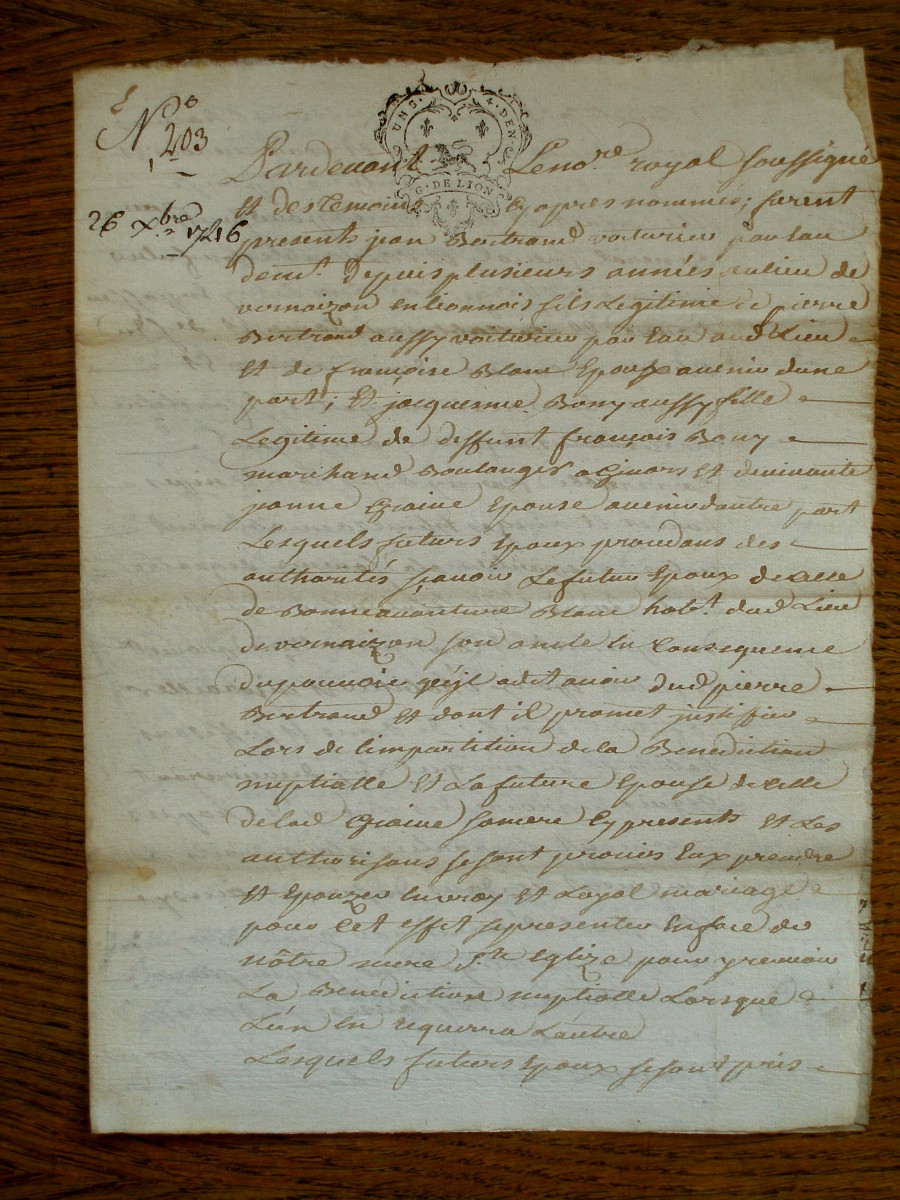 N.o 203
26 Xbre 1746
UN S. 4. DEN.
G. DE LION
Pardevant Le no.re royal soussigné
et des temoins cy apres nommés; furent
presents jean Bertrand voiturier par eau
dem.t depuis plusieurs années au lieu de
vernaizon en lionnois fils Legitime de pierre
Bertrand aussy voiturier par Eau aud Lieu
et de françoise Blanc Epoux avenir dune
part; Et jacquesme Bony aussy fille
Legitime de deffunt françois Bony
marchand Boulanger a Givors et de vivante
jeanne Graine Epouse avenir dautre part
Lesquels futurs Epoux procedans des
authorités sçavoir Le futur Epoux de celle
de Bonneavanture Blanc hab.t dud Lieu
de vernaizon son oncle En Consequence
du pouvoir qu'il a dit avoir dud pierre
Bertrand et dont il promet justiffier
Lors de L'impartition de la Benediction
nuptialle et La future Epouse de celle
de lad Graine sa mere Cy presents et Les
authorisans se sont promis Eux prendre
et Epouzer en vray et Loyal mariage
pour Cet effet se presenter En face de
nôtre mere S.te Eglize pour y recevoir
La Benediction nuptialle Lorsque
L'un En requerra L'autre
Lesquels futurs Epoux se sont pris